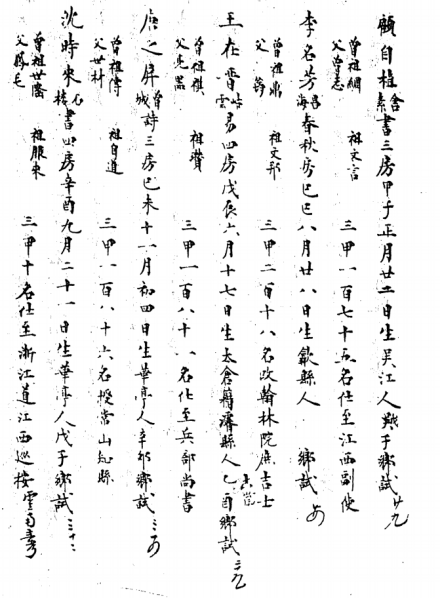 顧自植 含素 書三房甲子正月廿二日生吳江人戊子鄉試 廿九
曾祖綱 祖文言
父曾志
三甲一百七十五名仕至江西副使
李名芳 昌海 春秋房巳八月廿八日生歙縣人 鄉試
曾祖鼎 祖文邦
父
三甲二百十八名改翰林院庶吉士
王在晉 岵雲 易四房戊辰六月十七日生太倉籍濬縣人乙酉鄉試
曾祖祺 祖贊
父
三甲一百八十八名仕至兵部尚書
唐之屏 曾城 詩三房巳未十一月初四日生華亭人辛卯鄉試
曾祖 祖自道
父世
三甲一百八十六名授常山知縣
沈時來 書四房辛酉九月二十一日生華亭人戊子鄉試
曾祖世 祖服來
父
三甲十名仕至浙江道江西巡按